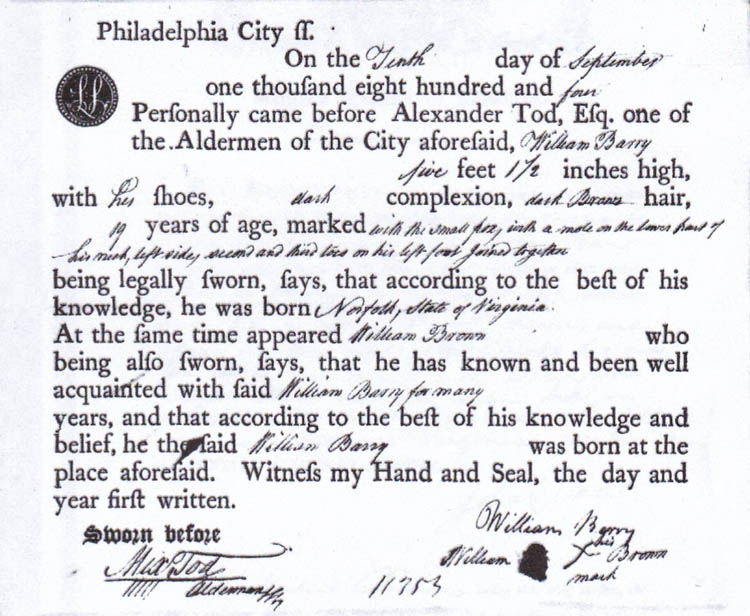 Philadelphia City ſſ.
On the Tenth day of September
one thouſand eight hundred and four
Perſonally came before Alexander Tod, Eſq. one of
the Aldermen of the City aforeſaid, William Barry
five feet 1 1/2 inches high,
with his ſhoes, dark complexion, dark Brown hair,
19 years of age, marked with the small pox, with a mole on the lower part of
his neck, left side, second and third toes on his left foot joined together
being legally ſworn, ſays, that according to the beſt of his
knowledge, he was born Norfolk, State of Virginia.
At the ſame time appeared William Brown who
being alſo ſworn, ſays, that he has known and been well
acquainted with ſaid William Barry for many
years, and that according to the beſt of his knowledge and
belief, he the ſaid William Barry was born at the
place aforeſaid. Witneſs my Hand and Seal, the day and
year firſt written.
Sworn before
William Barry
his
William X Brown
mark
Alex Tod
Alderman
11253